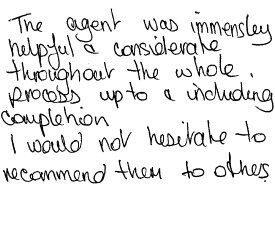 The agent was immensley
helpful & considerate
throughout the whole
process up to & including
completion
I would not hesitate to
recommend them to others